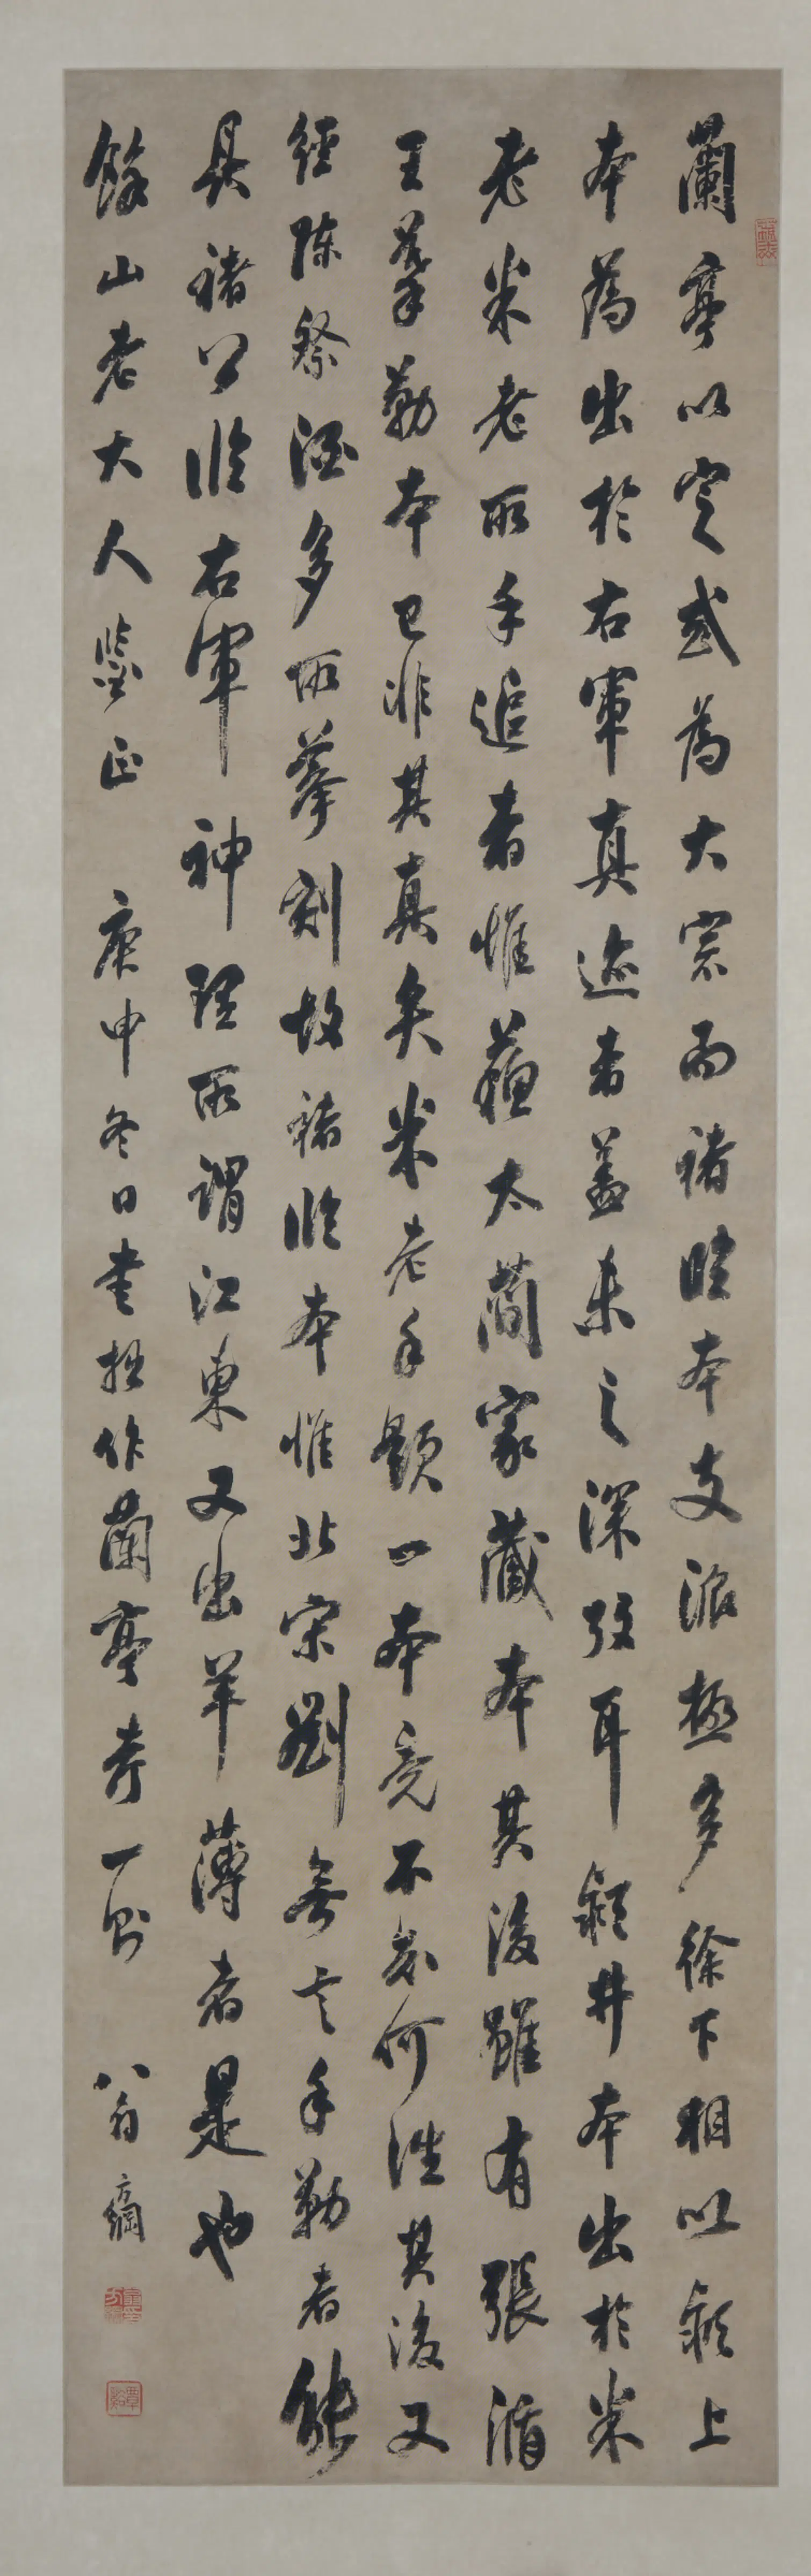 蘭亭以定武為大宗而褚臨本支派極多徐下相以潁上
本為出於右軍真迹者蓋未之深攷耳潁井本出於米
老米老所手追者惟蘇太簡家藏本其後雖有張澂
王鞏勒本已非其真矣米老手題一本竟不知何往其後又
經陳祭酒多所摹刻故褚臨本惟北宋劉無言手勒者能
具褚公臨右軍神理所謂江東又出羊薄者是也
餘山老大人鑒正 庚申冬日書拙作蘭亭考一則 翁方綱